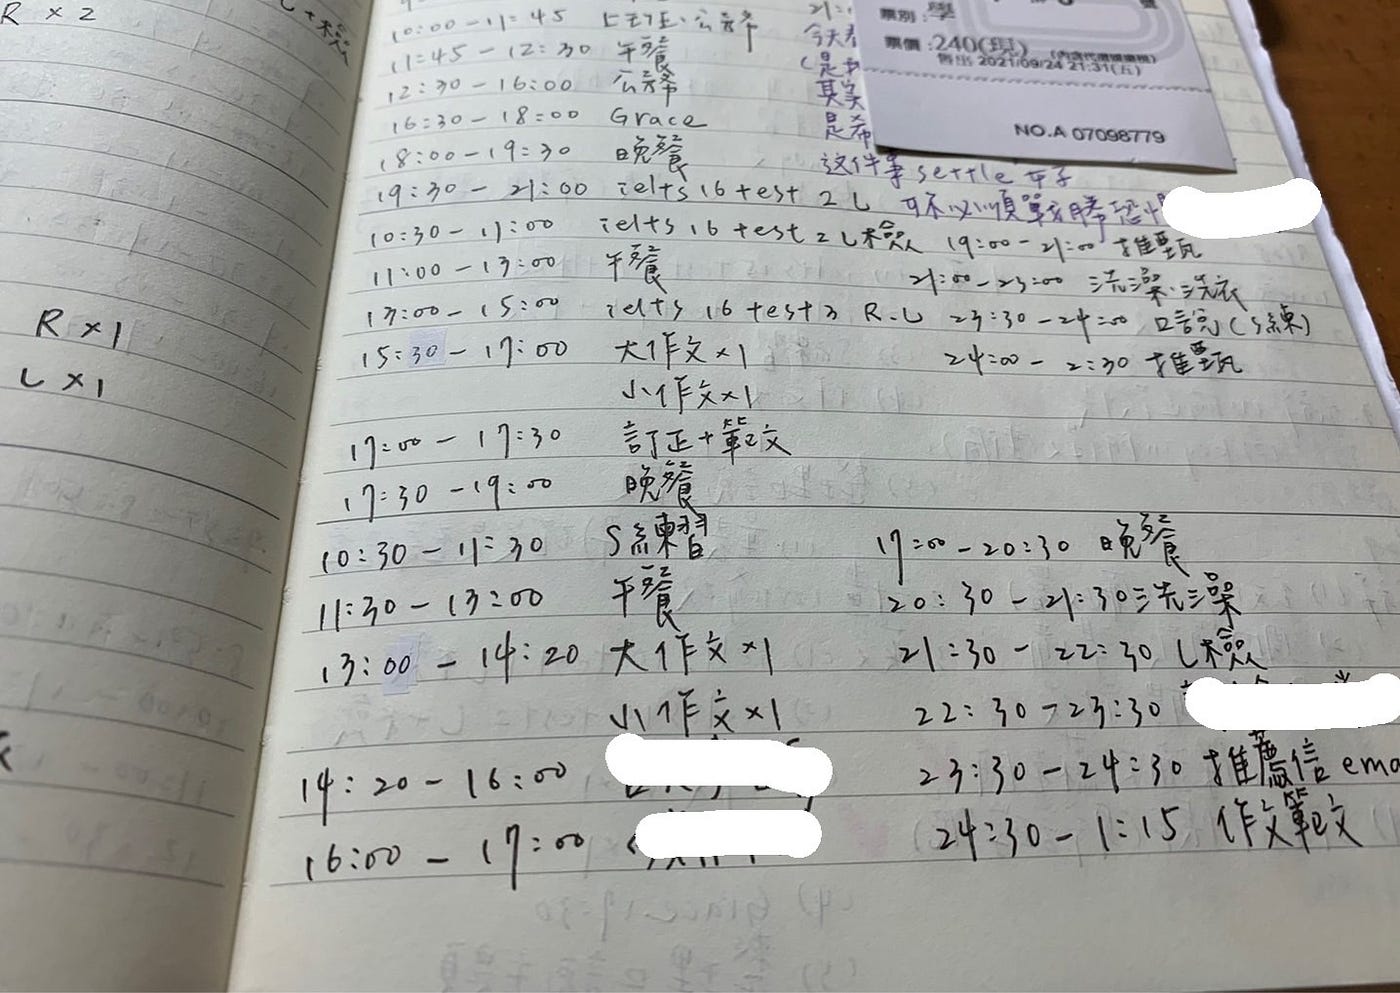 R × 2
L + 檢
R × 1
L × 1
10:00 - 11:45
11:45 - 12:30 午餐
12:30 - 16:00
16:30 - 18:00 Grace
18:00 - 19:30 晚餐
19:30 - 21:00 ielts 16 test 2 L
10:30 - 11:00 ielts 16 test 2 L檢
11:00 - 13:00 午餐
13:00 - 15:00 ielts 16 test 3 R.L
15:30 - 17:00 大作文×1
小作文×1
17:00 - 17:30 訂正+範文
17:30 - 19:00 晚餐
10:30 - 11:30 S練習
11:30 - 13:00 午餐
13:00 - 14:20 大作文×1
小作文×1
14:20 - 16:00
16:00 - 17:00
今天
其實
這件事 settle
19:00 - 21:00 推甄
21:00 - 23:00 洗澡.洗衣
23:30 - 24:00 口說(S練)
24:00 - 2:30 推甄
17:00 - 20:30 晚餐
20:30 - 21:30 洗澡
21:30 - 22:30 L檢
22:30 - 23:30
23:30 - 24:30 推薦信 ema
24:30 - 1:15 作文範文
票別:學
票價:240(現)
售出 2021/09/24 21:31(五)
NO.A 07098779